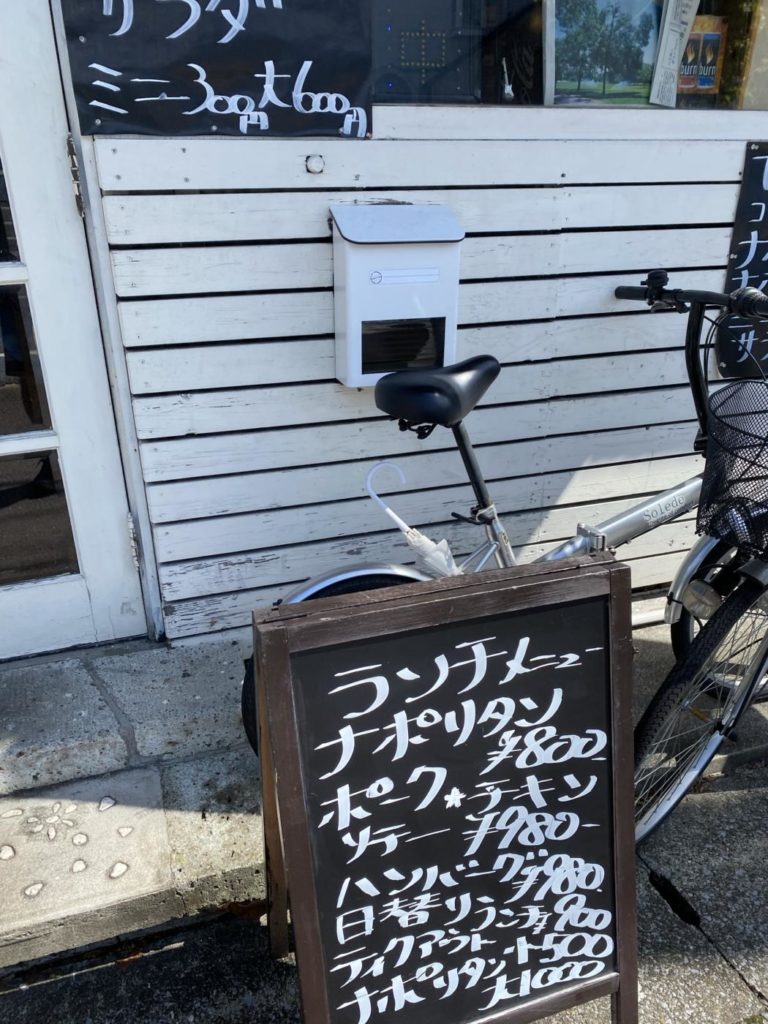 サラダ
ミニ300円大600円
burn
burn
Soledo
ランチメニュー
ナポリタン
¥800
ポーク★チキン
ソテー ¥980-
ハンバーグ¥980
日替りランチ¥900
ティクアウト 小500
ナポリタン 大1000